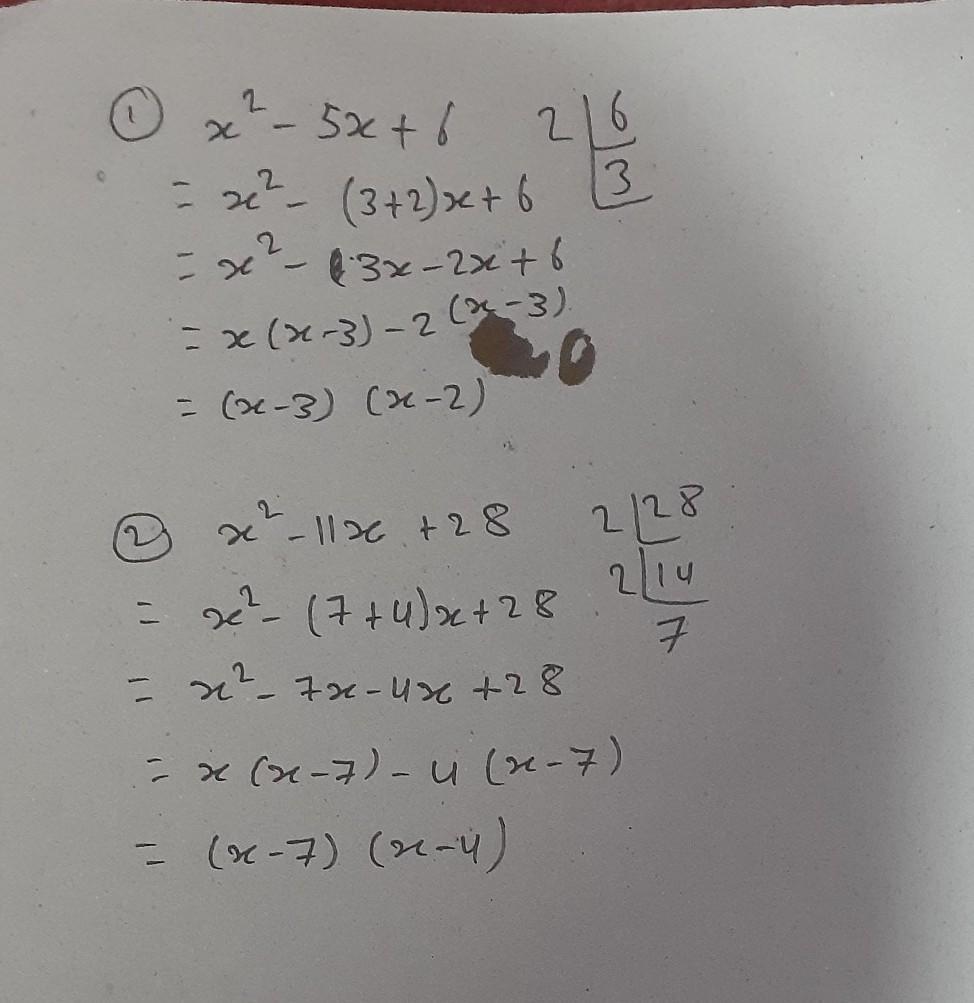 ① x² - 5x + 6    2 | 6
3
= x² - (3+2)x + 6
= x² - 3x - 2x + 6
= x(x-3) - 2(x-3)
= (x-3) (x-2)
② x² - 11x + 28    2 | 28
= x² - (7+4)x + 28    2 | 14
7
= x² - 7x - 4x + 28
= x(x-7) - 4(x-7)
= (x-7) (x-4)